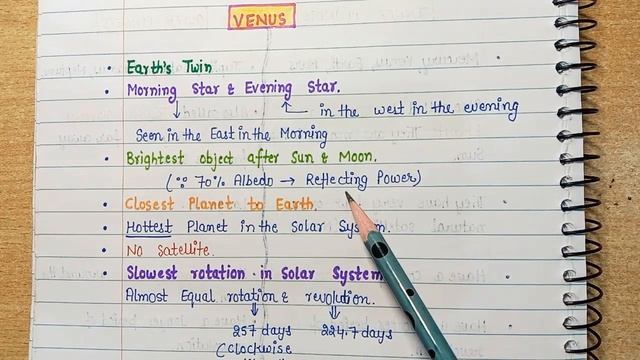 VENUS
• Earth's Twin
• Morning Star & Evening Star.
in the west in the evening
Seen in the East in the Morning
• Brightest object after Sun & Moon.
(∵ 70% Albedo → Reflecting Power)
• Closest Planet to Earth.
• Hottest Planet in the Solar System.
• No Satellite.
• Slowest rotation in Solar System
Almost Equal rotation & revolution.
257 days 224.7 days
(Clockwise